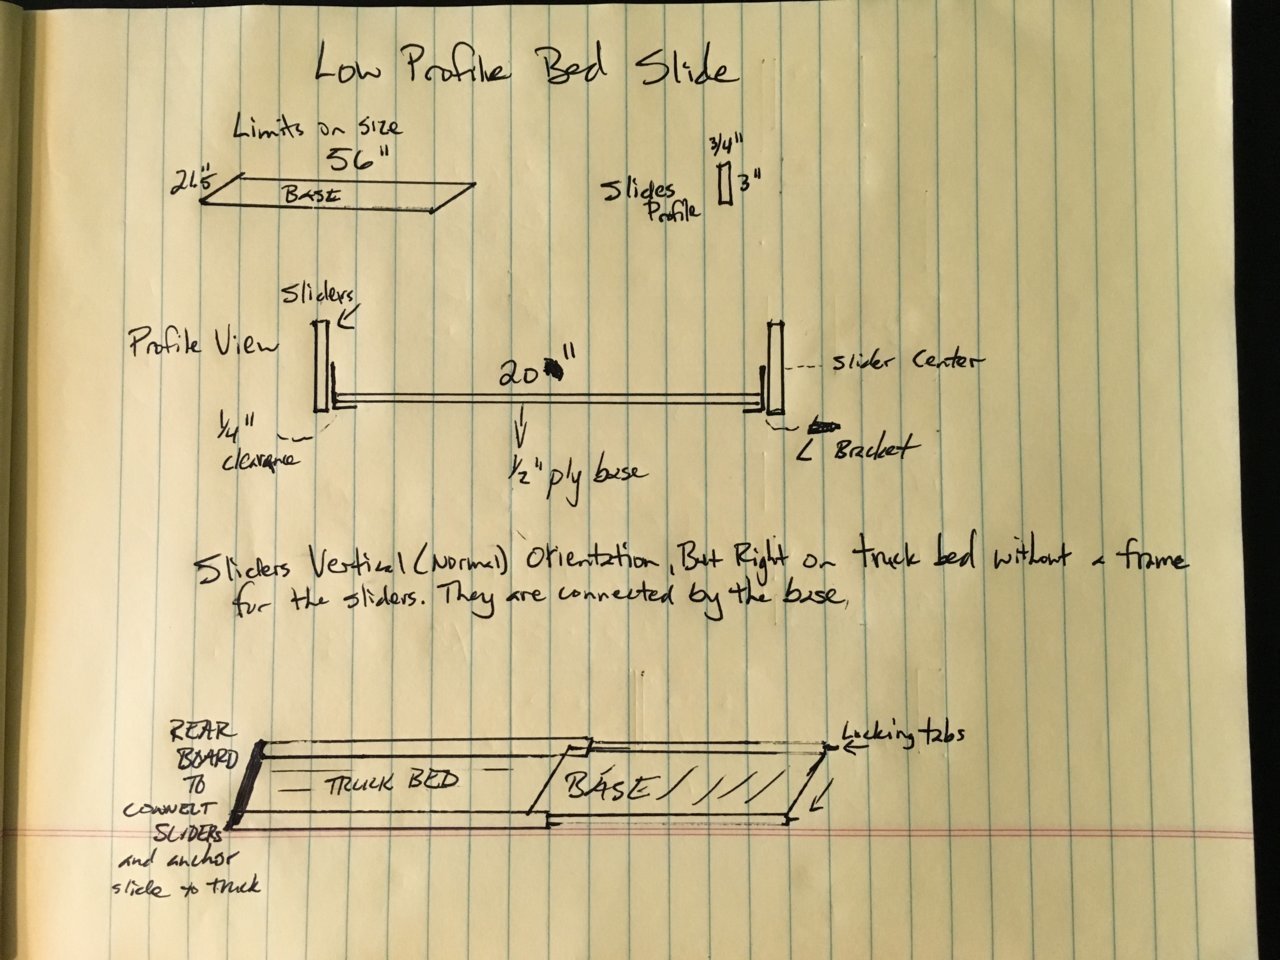 Low Profile Bed Slide
Limits on size
56"
21.5"
BASE
3/4"
3"
Slides
Profile
Sliders
Profile View
20"
Slider Center
1/4"
Clearance
1/2" ply base
L Bracket
Sliders Vertical (Normal) Orientation, But Right on truck bed without a frame
for the sliders. They are connected by the base.
REAR
BOARD
TO
CONNECT
SLIDERS
and anchor
slide to truck
TRUCK BED
BASE
Locking tabs